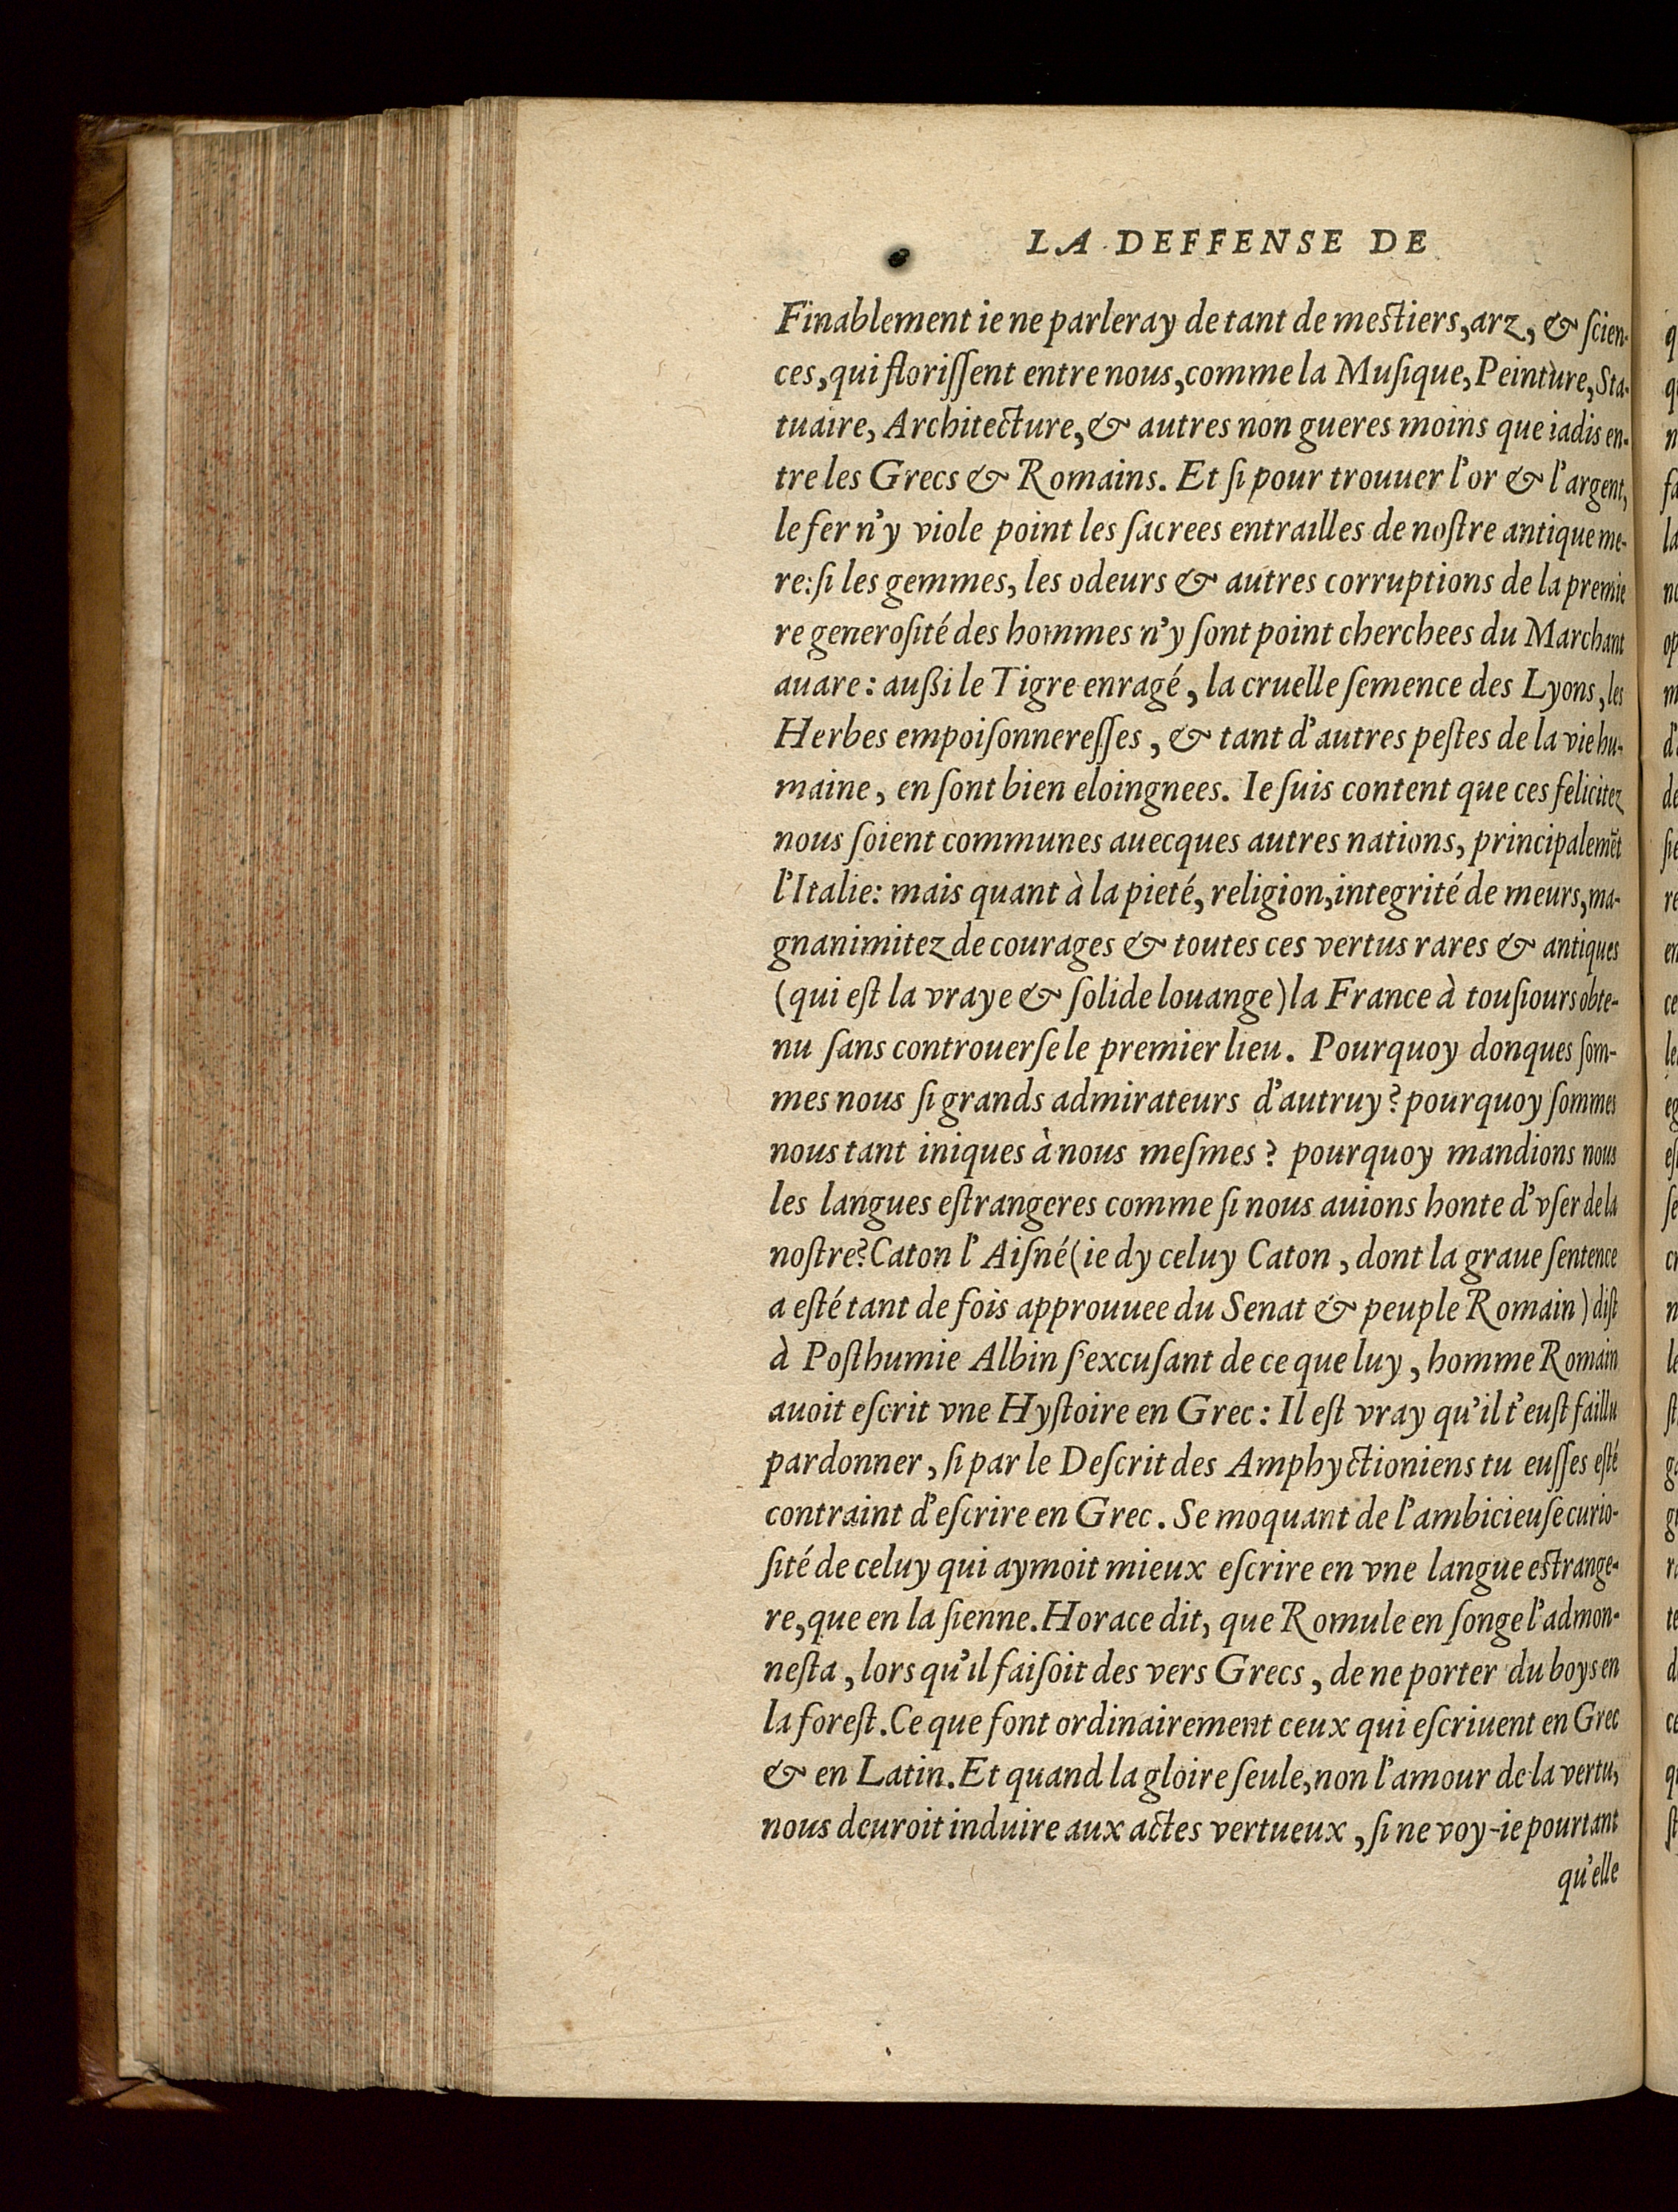 LA DEFFENSE DE
Finablement ie ne parleray de tant de mestiers, arz, & ſcien-
ces, qui floriſſent entre nous, comme la Muſique, Peinture, Sta-
tuaire, Architecture, & autres non gueres moins que iadis en-
tre les Grecs & Romains. Et ſi pour trouuer l'or & l'argent,
le fer n'y viole point les ſacrees entrailles de noſtre antique me-
re: ſi les gemmes, les odeurs & autres corruptions de la premie
re generoſité des hommes n'y ſont point cherchees du Marchant
auare: außi le Tigre enragé, la cruelle ſemence des Lyons, les
Herbes empoiſonnereſſes, & tant d'autres peſtes de la vie hu-
maine, en ſont bien eloingnees. Ie ſuis content que ces felicitez
nous ſoient communes auecques autres nations, principalemẽt
l'Italie: mais quant à la pieté, religion, integrité de meurs, ma-
gnanimitez de courages & toutes ces vertus rares & antiques
(qui eſt la vraye & ſolide louange) la France à touſiours obte-
nu ſans controuerſe le premier lieu. Pourquoy donques ſom-
mes nous ſi grands admirateurs d'autruy? pourquoy ſommes
nous tant iniques à nous meſmes? pourquoy mandions nous
les langues eſtrangeres comme ſi nous auions honte d'vſer de la
noſtre? Caton l'Aiſné (ie dy celuy Caton, dont la graue ſentence
a eſté tant de fois approuuee du Senat & peuple Romain) diſt
à Poſthumie Albin ſ'excuſant de ce que luy, homme Romain
auoit eſcrit vne Hyſtoire en Grec: Il eſt vray qu'il t'euſt faillu
pardonner, ſi par le Deſcrit des Amphyctioniens tu euſſes eſté
contraint d'eſcrire en Grec. Se moquant de l'ambicieuſe curio-
ſité de celuy qui aymoit mieux eſcrire en vne langue eſtrange-
re, que en la ſienne. Horace dit, que Romule en ſonge l'admon-
neſta, lors qu'il faiſoit des vers Grecs, de ne porter du boys en
la foreſt. Ce que font ordinairement ceux qui eſcriuent en Grec
& en Latin. Et quand la gloire ſeule, non l'amour de la vertu,
nous deuroit induire aux actes vertueux, ſi ne voy-ie pourtant
qu'elle